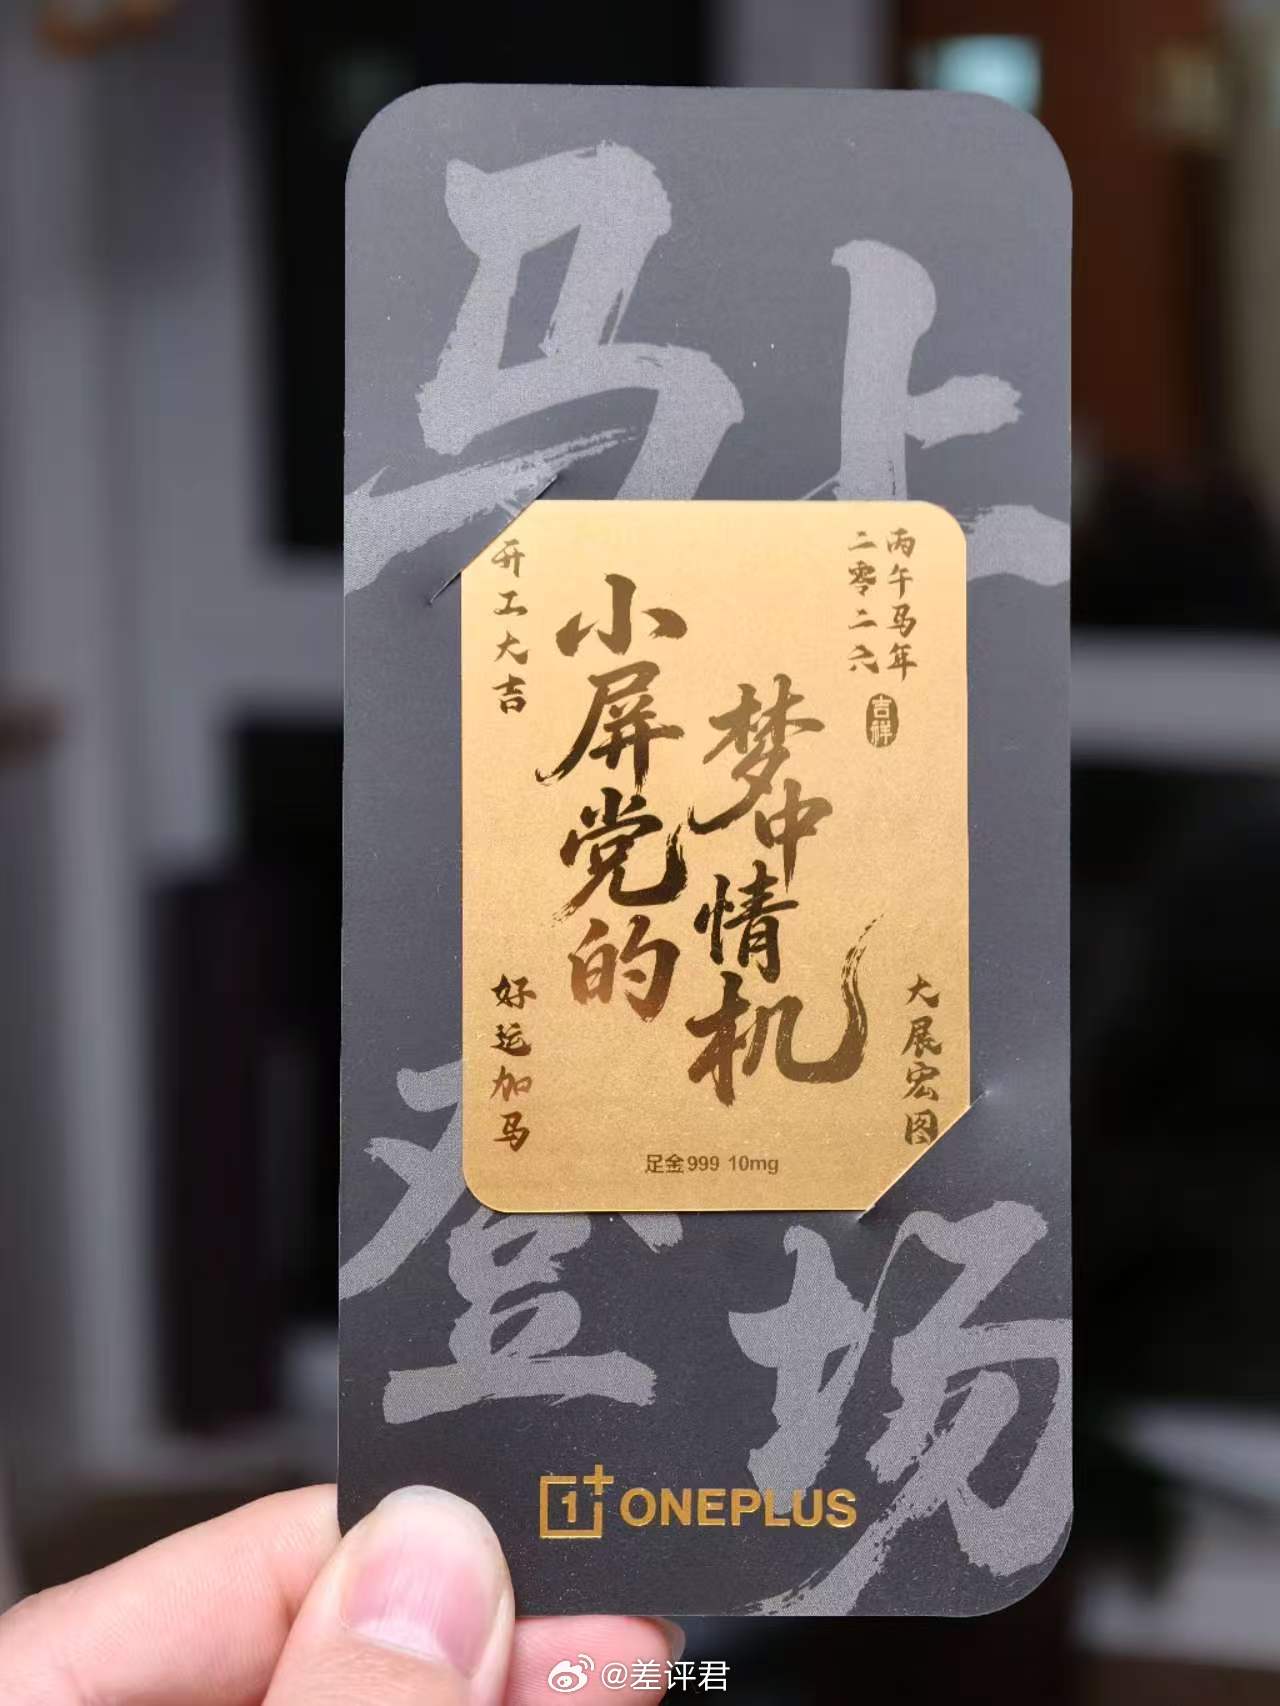 马上
登场
开工大吉
丙午马年
二零二六
吉祥
小屏党的
梦中情机
好运加马
大展宏图
足金999 10mg
1+ ONEPLUS
@差评君